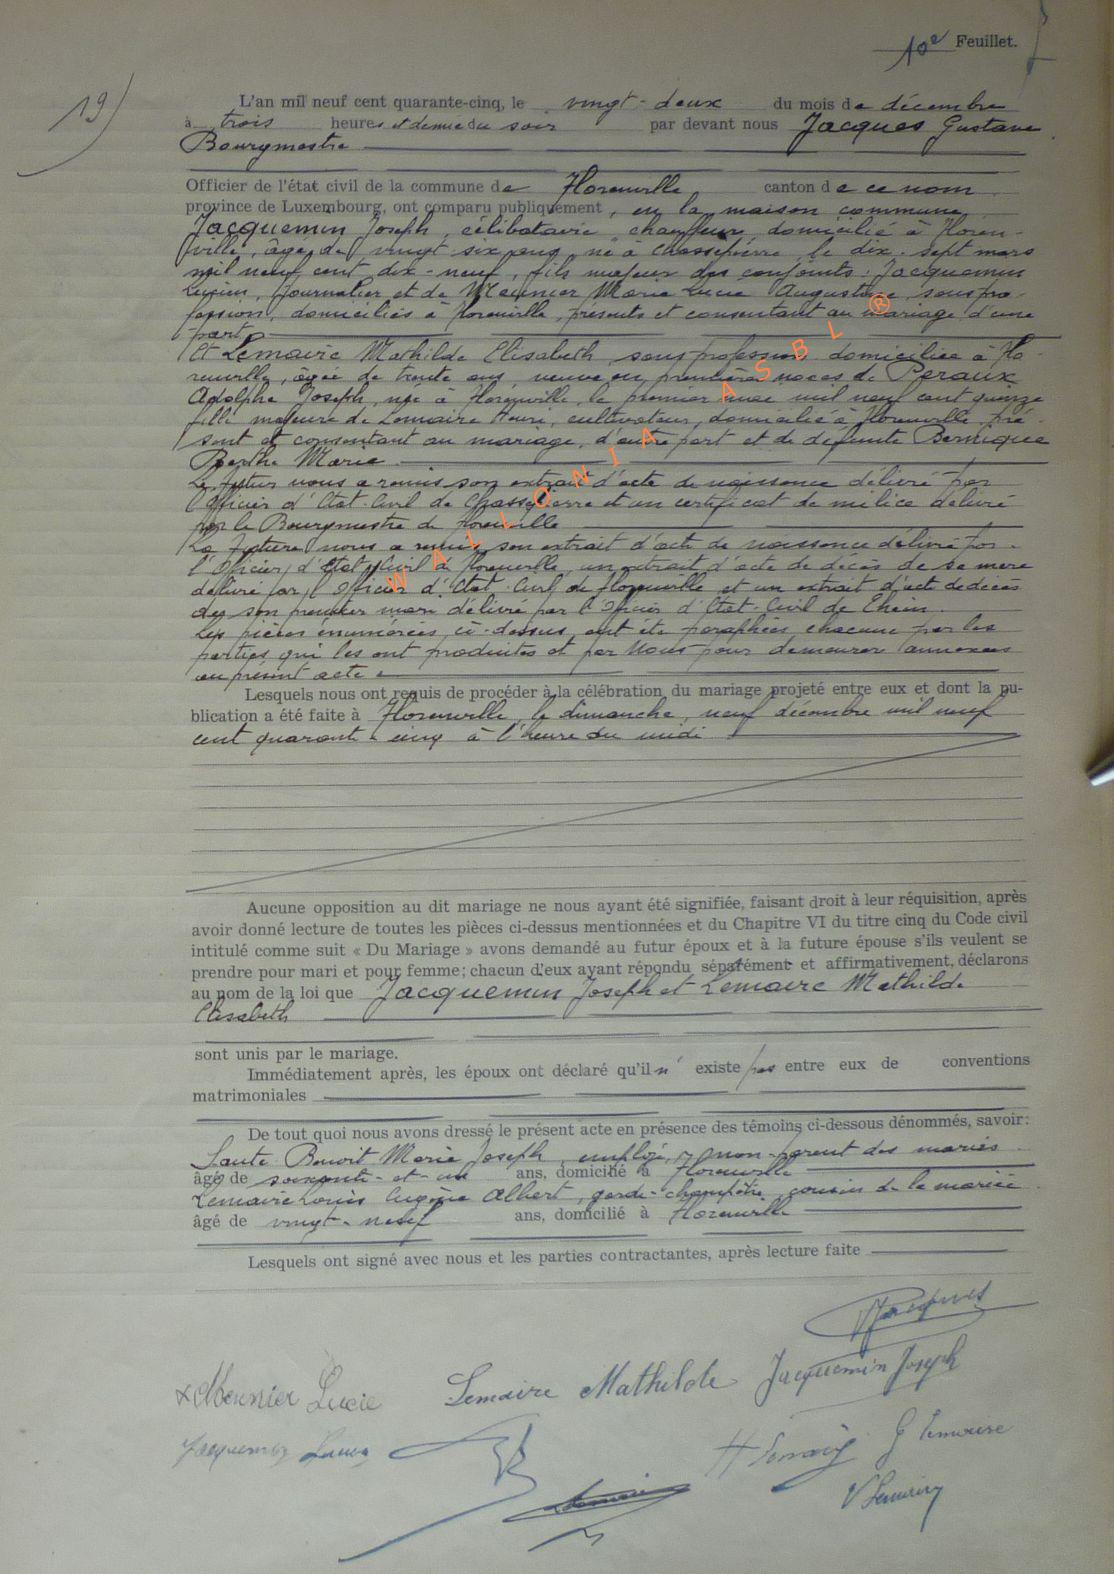 10e Feuillet.
19)
L'an mil neuf cent quarante-cinq, le vingt-deux du mois de décembre
à trois heures et demie du soir par devant nous Jacques Gustave
Bourgmestre
Officier de l'état civil de la commune de Florenville canton de ce nom
province de Luxembourg, ont comparu publiquement, en la maison commune
Jacquemin Joseph, célibataire, chauffeur, domicilié à Floren-
ville, âgé de vingt-six ans, né à Chassepierre, le dix-sept mars
mil neuf cent dix-neuf, fils majeur des conjoints: Jacquemin
Lucien, journalier et de Meunier Marie Lucie Augustine, sans pro-
fession, domiciliés à Florenville, présents et consentant au mariage d'une
part,
Et Lemaire Mathilde Elisabeth, sans profession, domiciliée à Flo-
renville, âgée de trente ans, veuve en premières noces de Peraux
Adolphe Joseph, née à Florenville, le premier mai mil neuf cent quinze
fille majeure de Lemaire Henri, cultivateur, domicilié à Florenville, pré-
sent et consentant au mariage, d'autre part et de défunte Bernique
Berthe Marie.
Le futur nous a remis son extrait d'acte de naissance délivré par
l'Officier d'Etat-Civil de Chassepierre et un certificat de milice délivré
par le Bourgmestre de Florenville
La future nous a remis son extrait d'acte de naissance délivré par
l'Officier d'Etat-Civil de Florenville, un extrait d'acte de décès de sa mère
délivré par l'Officier d'Etat-Civil de Florenville et un extrait d'acte de décès
de son premier mari délivré par l'Officier d'Etat-Civil de
Les pièces énumérées ci-dessus, ont été paraphées chacune par les
parties qui les ont produites et par Nous pour demeurer annexées
au présent acte.
Lesquels nous ont requis de procéder à la célébration du mariage projeté entre eux et dont la pu-
blication a été faite à Florenville, le dimanche, neuf décembre mil neuf
cent quarante-cinq à l'heure du midi
Aucune opposition au dit mariage ne nous ayant été signifiée, faisant droit à leur réquisition, après
avoir donné lecture de toutes les pièces ci-dessus mentionnées et du Chapitre VI du titre cinq du Code civil
intitulé comme suit « Du Mariage » avons demandé au futur époux et à la future épouse s'ils veulent se
prendre pour mari et pour femme; chacun d'eux ayant répondu séparément et affirmativement, déclarons
au nom de la loi que Jacquemin Joseph et Lemaire Mathilde
Elisabeth
sont unis par le mariage.
Immédiatement après, les époux ont déclaré qu'il n'existe pas entre eux de conventions
matrimoniales
De tout quoi nous avons dressé le présent acte en présence des témoins ci-dessous dénommés, savoir:
Benoit Marie Joseph, employé, non-parent des mariés
âgé de soixante-et-un ans, domicilié à Florenville
Lemaire Louis Eugène Albert, garde-champêtre, cousin de la mariée
âgé de vingt-neuf ans, domicilié à Florenville
Lesquels ont signé avec nous et les parties contractantes, après lecture faite
Jacques
Meunier Lucie Lemaire Mathilde Jacquemin Joseph
Jacquemin H Lemaire G Lemaire
Lemaire V Lemaire
WALLONIA ASBL ®